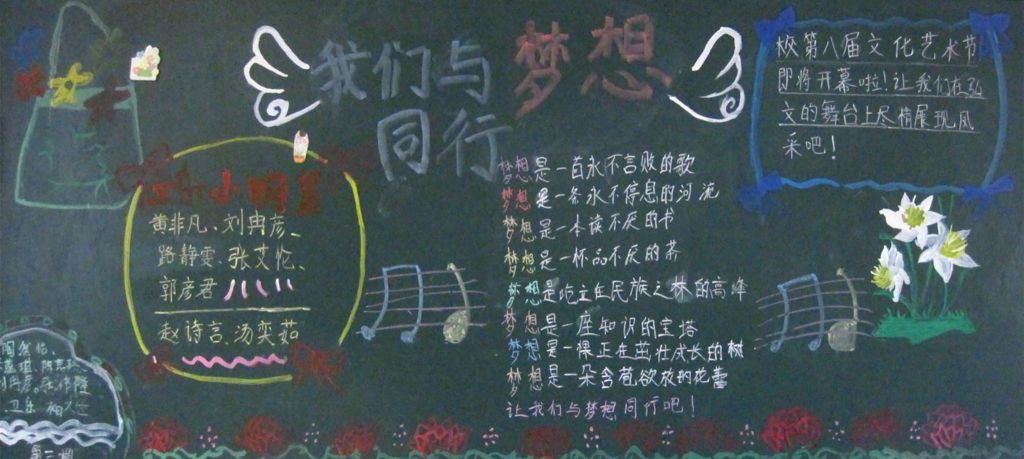 我们与梦想
同行
校第八届文化艺术节
即将开幕啦!让我们在弘
文的舞台上尽情展现风
采吧!
黄非凡、刘冉彦、
路静雯、张艾忆、
郭彦君
赵诗言、汤奕茹
梦想是一首永不言败的歌
梦想是一条永不停息的河流
梦想是一本读不厌的书
梦想是一杯品不厌的茶
梦想是屹立在民族之林的高峰
梦想是一座知识的宝塔
梦想是一棵正在茁壮成长的树
梦想是一朵含苞欲放的花蕾
让我们与梦想同行吧!